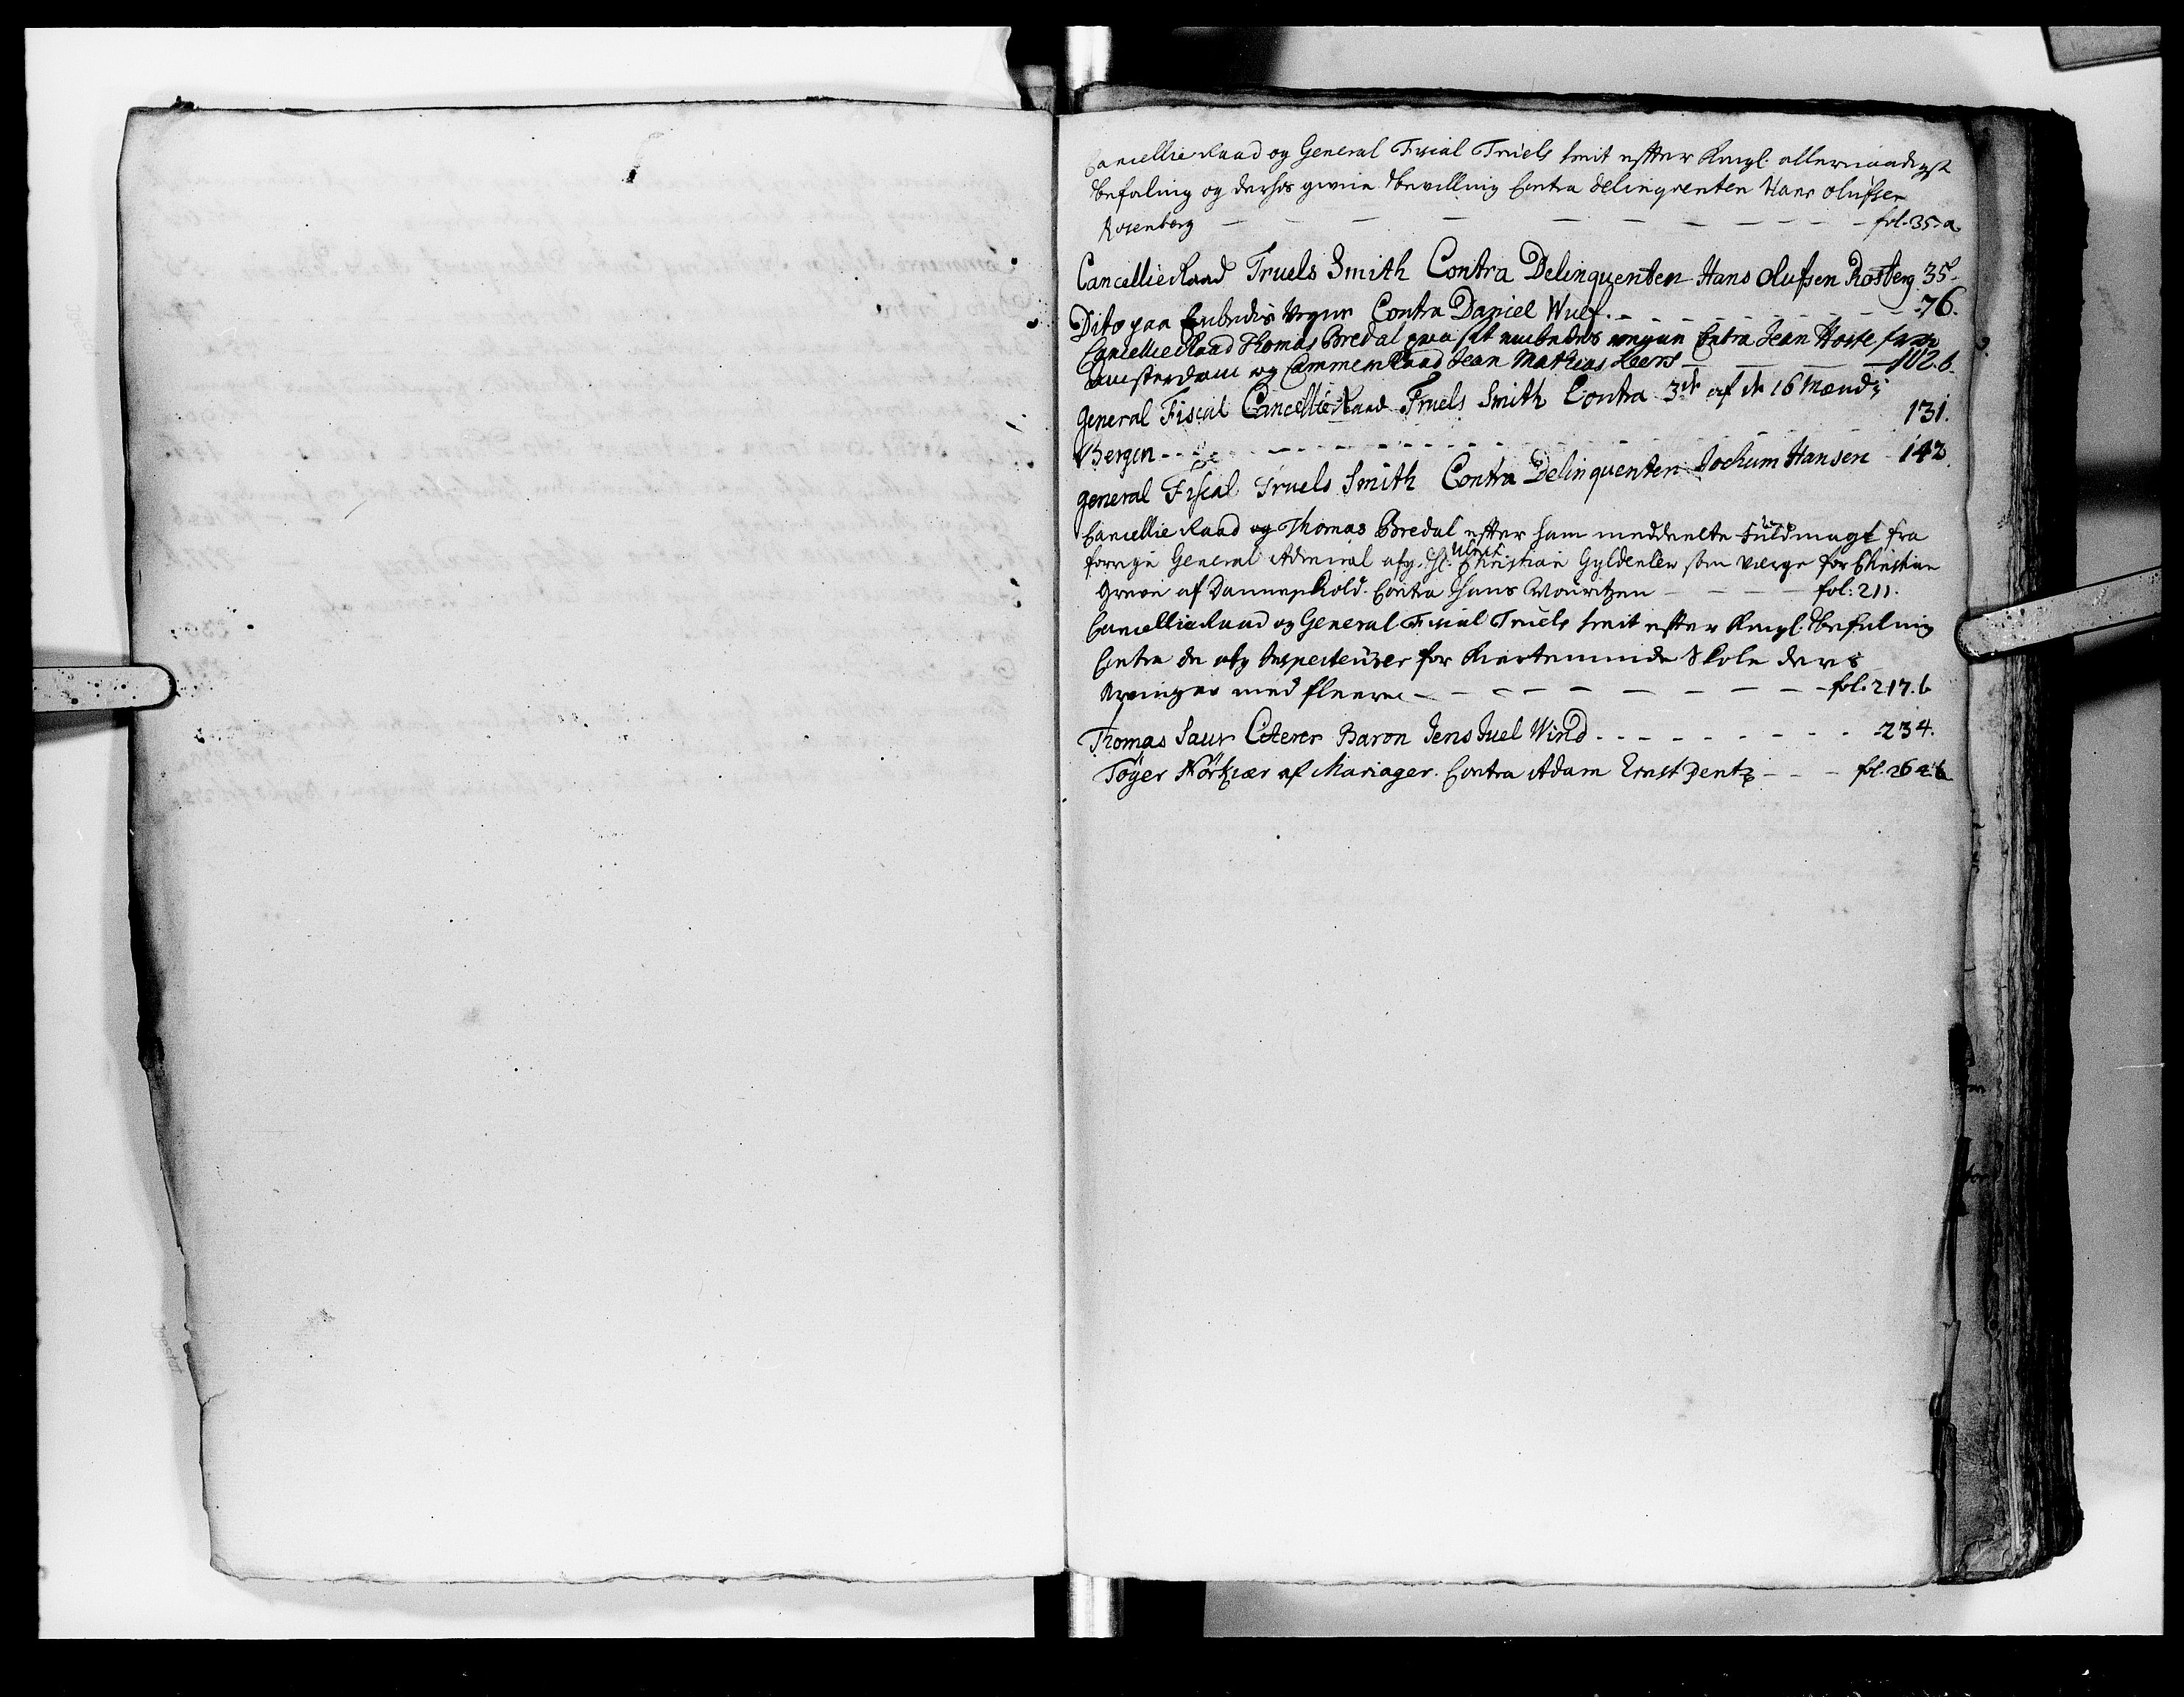 Cancellie Raad og General Fiscal Truels Smit effter Kongl: allernaadigst
befaling og derhos givne bevilling Contra delinqventen Hans Olufsen
Rosenberg — — — — — — — — fol. 35. a.
Cancellie Raad Truels Smith Contra Delinquenten Hans Olufsen Rosberg 35.
Dito paa Embedis Vegne Contra Daniel Wulf. - - - - - - 76.
Cancellie Raad Thomas Bredal paa sit embedes vegne Contra Jean Hoste fra
Amsterdam og Commerce Raad Jean Mathias Leers — — — 102. b.
General Fiscal Cancellie Raad Truels Smith Contra 3de af de 16 Mænd i
Bergen - - - - - - - - - - - - 131.
General Fiscal Truels Smith Contra Delinquenten Jochum Hansen 142.
Cancellie Raad og Thomas Bredal effter ham meddeelte Fuldmagt fra
forrige General Admiral afg. Hr. Ulrich Christian Gyldenlew som værge for Christian
Greve af Danneskiold. Contra Hans Mouritzen — — — — fol: 211.
Cancellie Raad og General Fiscal Truels Smit effter Kongl: befaling
Contra de afg Inspecteurer for Kierteminde Skole deres
Arvinger med fleere — — — — — — — fol. 217. b
Thomas Saur Citerer Baron Jens Juel Wind - - - - - - - - 234.
Töger Nörkier af Mariager. Contra Adam Ernst Pentz — — — fol. 264. b